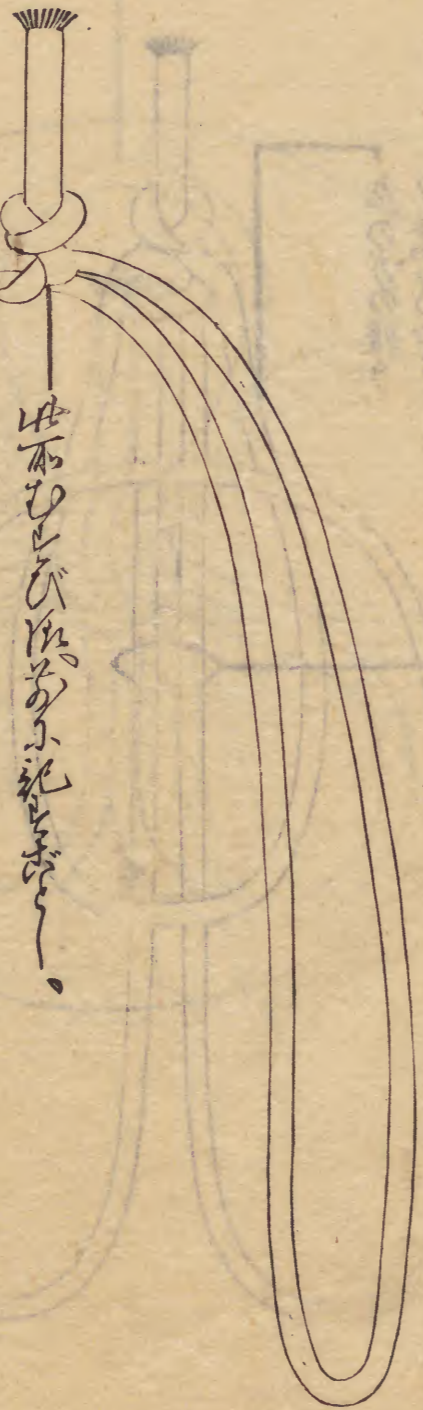 此所むすび様前に記すがごとし。